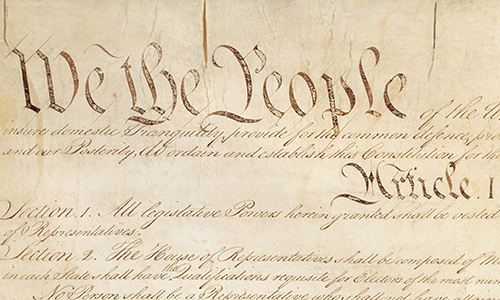 We the People of the U
insure domestic Tranquility, provide for the common defence, pro
and our Posterity, do ordain and establish this Constitution for th
Article. I
Section. 1. All legislative Powers herein granted shall be veste
of Representatives.
Section. 2. The House of Representatives shall be composed of M
in each State shall have the Qualifications requisite for Electors of the most num
No Person shall be a Representative who shall not have